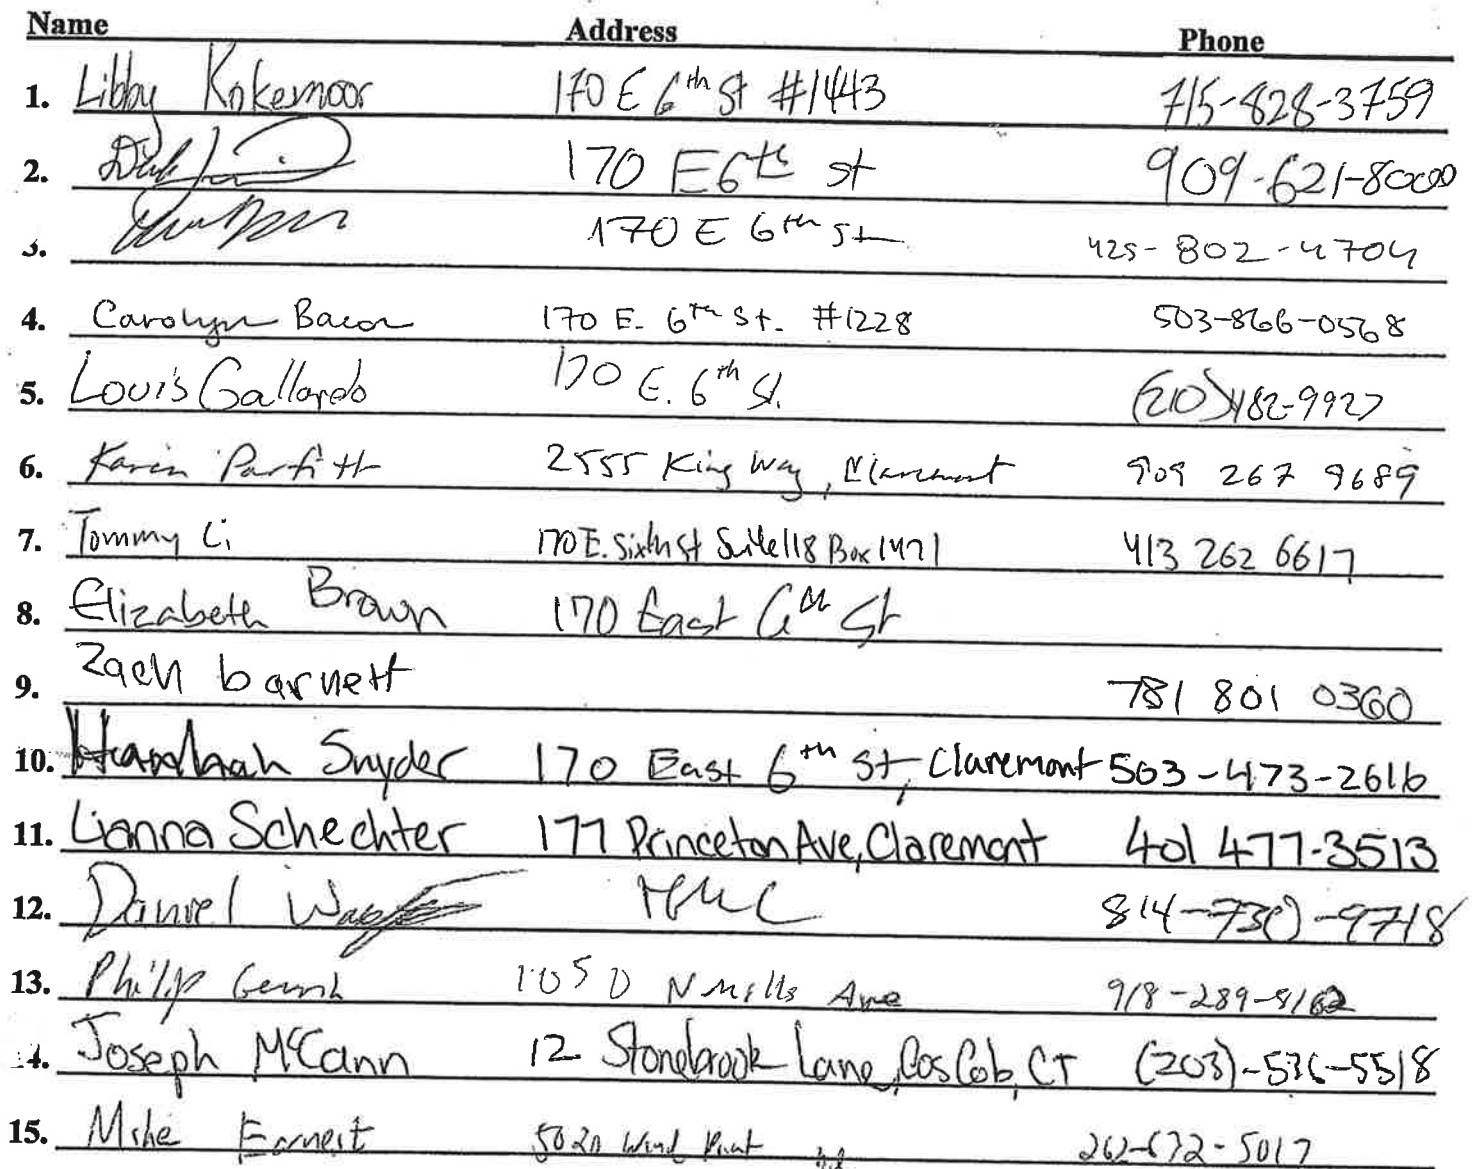 Name Address Phone
1. Libby Kokemoor 170 E 6th St #1443 715-828-3759
2. 170 E 6th st 909-621-8000
3. 170 E 6th St 425-802-4704
4. Carolyn Bacon 170 E. 6th St. #1228 503-866-0568
5. Louis Gallardo 170 E. 6th St. (210)482-9927
6. Karin Parfitt 2555 King Way, Claremont 909 267 9689
7. Tommy Li 170 E. Sixth St Suite 118 Box 1471 413 262 6617
8. Elizabeth Brown 170 East 6th St
9. Zach barnett 781 801 0360
10. Hannah Snyder 170 East 6th St, Claremont 503-473-2616
11. Lianna Schechter 177 Princeton Ave, Claremont 401 477-3513
12. Daniel HMC 814-730-9718
13. Philip 1050 N Mills Ave 918-289-8162
14. Joseph McCann 12 Stonebrook Lane, Cos Cob, CT (203)-536-5518
15. Mike Earnest 5020 Wind Point 262-672-5017